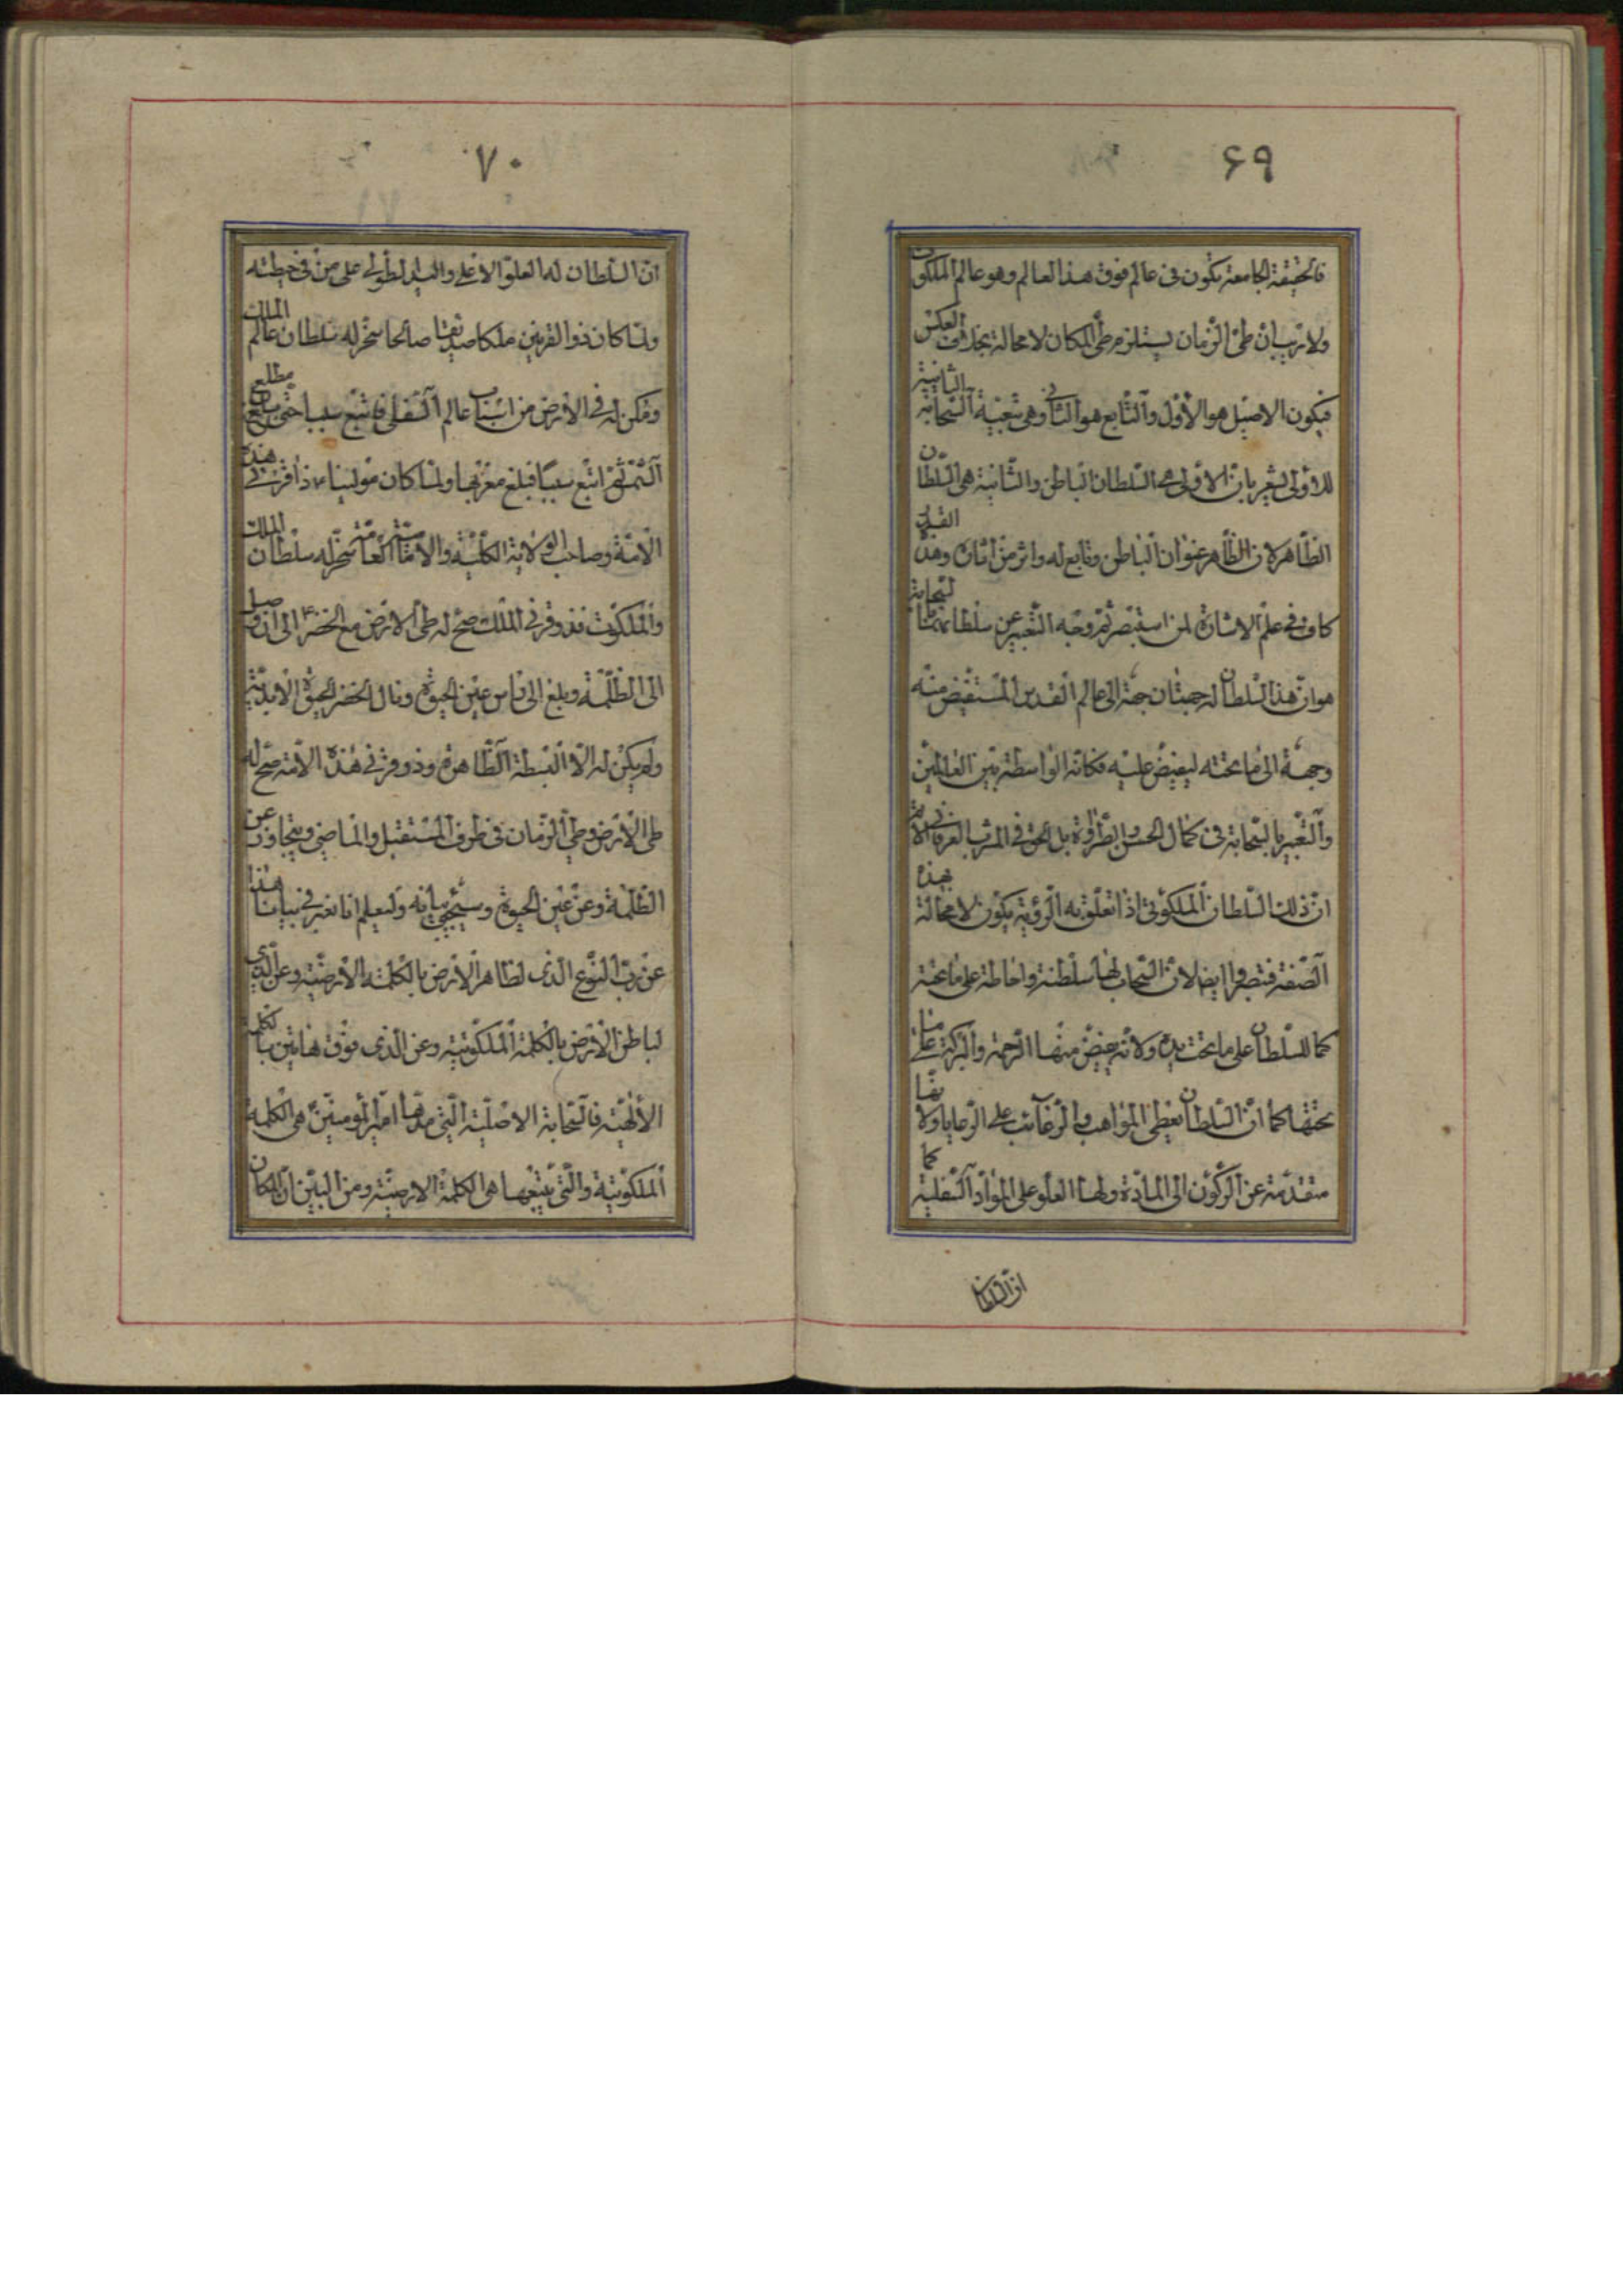 ۶۹
فالحقيقة الجامعة تكون فى عالم فوق هذا العالم وهو عالم الملكوت
ولا ريب ان طىّ الزّمان يستلزم طىّ المكان لا محالة بخلاف العكس
فيكون الاصيل هو الأوّل والتّابع هو الثانى وهى تبعيّة السّحابة الثانية
للاولى ليشير بانّ الاولى هى السّلطان الباطن والثّانية هى السّلطان
الظّاهر لان الظّاهر عنوان الباطن وتابع له واثر من آثاره وهذا القدر
كاف فى علم الاشارة لمن استبصر ثمّ وجه التّعبير عن سلطانهما بالسّحابة
هو انّ هذا السّلطان له جهتان جهة الى عالم القدس المستفيض منه
وجهة الى ما تحته ليفيض عليه فكانّه الواسطة بين العالمين
والتّعبير بالسّحابة فى كمال الحسن والطّراوة بل الحق فى المشرب العرفانى الاتمّ
انّ ذلك السّلطان الملكوتى اذا تعلّق به الرّؤية يكون لا محالة بهذه
الصّفة فتبصّر وايضا لانّ السّحاب لها سلطنة واحاطة على ما تحته
كما للسّلطان على ما تحت يده ولانّه يفيض منها الرّحمة والبركة على ما
تحتها كما انّ السّلطان يعطى المواهب والرّغائب على الرّعايا ولانّها
متقدّمة عن الركون الى المادّة ولها العلو على الموادّ السّفلية كما
انّ السّلطان
۷۰
انّ السّلطان له العلوّ الاعلى واليد الطولى على من فى حيطته
ولمّا كان ذو القرنين ملكا صديقا صالحا سخّر له سلطان عالم الملك
ومكن له فى الارض من اسباب عالم السّفلى فاتبع سببا حتّى بلغ مطلع
الشّمس ثمّ اتبع سببا فبلغ مغربها ولمّا كان مولينا ع ذا قرنى هذه
الامّة وصاحب الولاية الكلّيّة والامامة العامّة سخّر له سلطان الملك
والملكوت فذو قرنى الملك صحّ له طىّ الارض مع الخضر ع الى ان وصل
الى الظّلمة وبلغ الى ناس عين الحيوة ونال الخضر الحيوة الابديّة
ولم يكن له الّا البسطة الظّاهرة وذو قرنى هذه الامّة صحّ له
طى الارض وطى الزّمان فى طرف المستقبل والماضى ويتجاوز عن
الظّلمة وعن عين الحيوة وسيجىء بيانه وليعلم انا نعبر فى بياننا هذا
عن ربّ النوع الذى لظاهر الارض بالكلمة الارضيّة وعن الّذى
لباطن الارض بالكلمة الملكوتية وعن الذى فوق هاتين بالكلمة
الالهيّة فالسّحابة الاصليّة الّتى مدّها امير المومنين هى الكلمة
الملكوتية والّتى يتبعها هى الكلمة الارضيّة ومن البيّن ان المكان